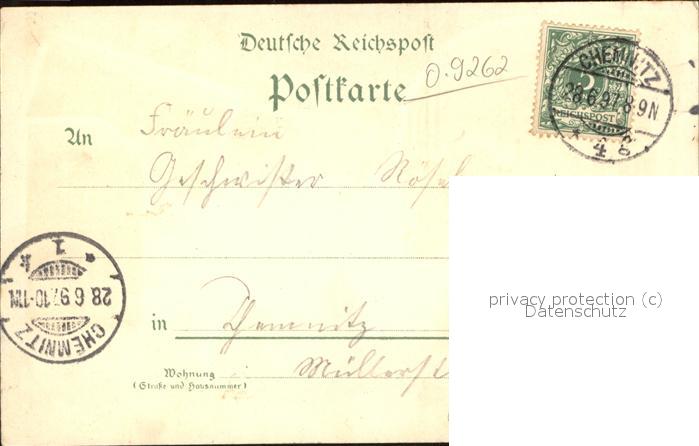 Deutsche Reichspost
Postkarte
0.9262
5
REICHSPOST
CHEMNITZ
28.6.97. 8-9N
* 4
An Fräulein
Geschwister Rösel
CHEMNITZ
28.6.97.10-11N.
* 1
in Chemnitz
Wohnung
(Straße und Hausnummer)
Müllerst
privacy protection (c)
Datenschutz